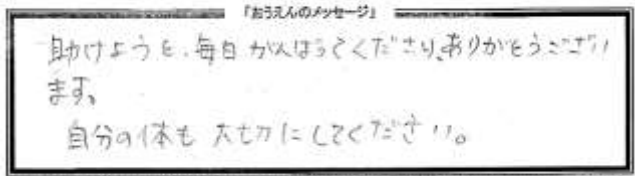 「おうえんのメッセージ」
助けようと、毎日がんばってくださり、ありがとうござい
ます。
自分の体も大切にしてください。